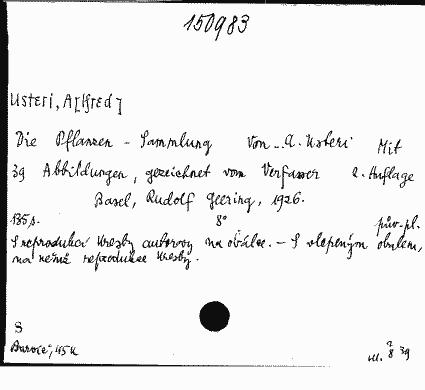 150983
Usteri, A[lfred]
Die Pflanzen - Sammlung Von ... A. Usteri Mit
39 Abbildungen, gezeichnet vom Verfasser 2. Auflage
Basel, Rudolf Geering, 1926.
135 s. 8° pův. pl.
S reprodukcí kresby autorovy na obálce. - S vlepeným obalem,
na němž reprodukce kresby.
S
39